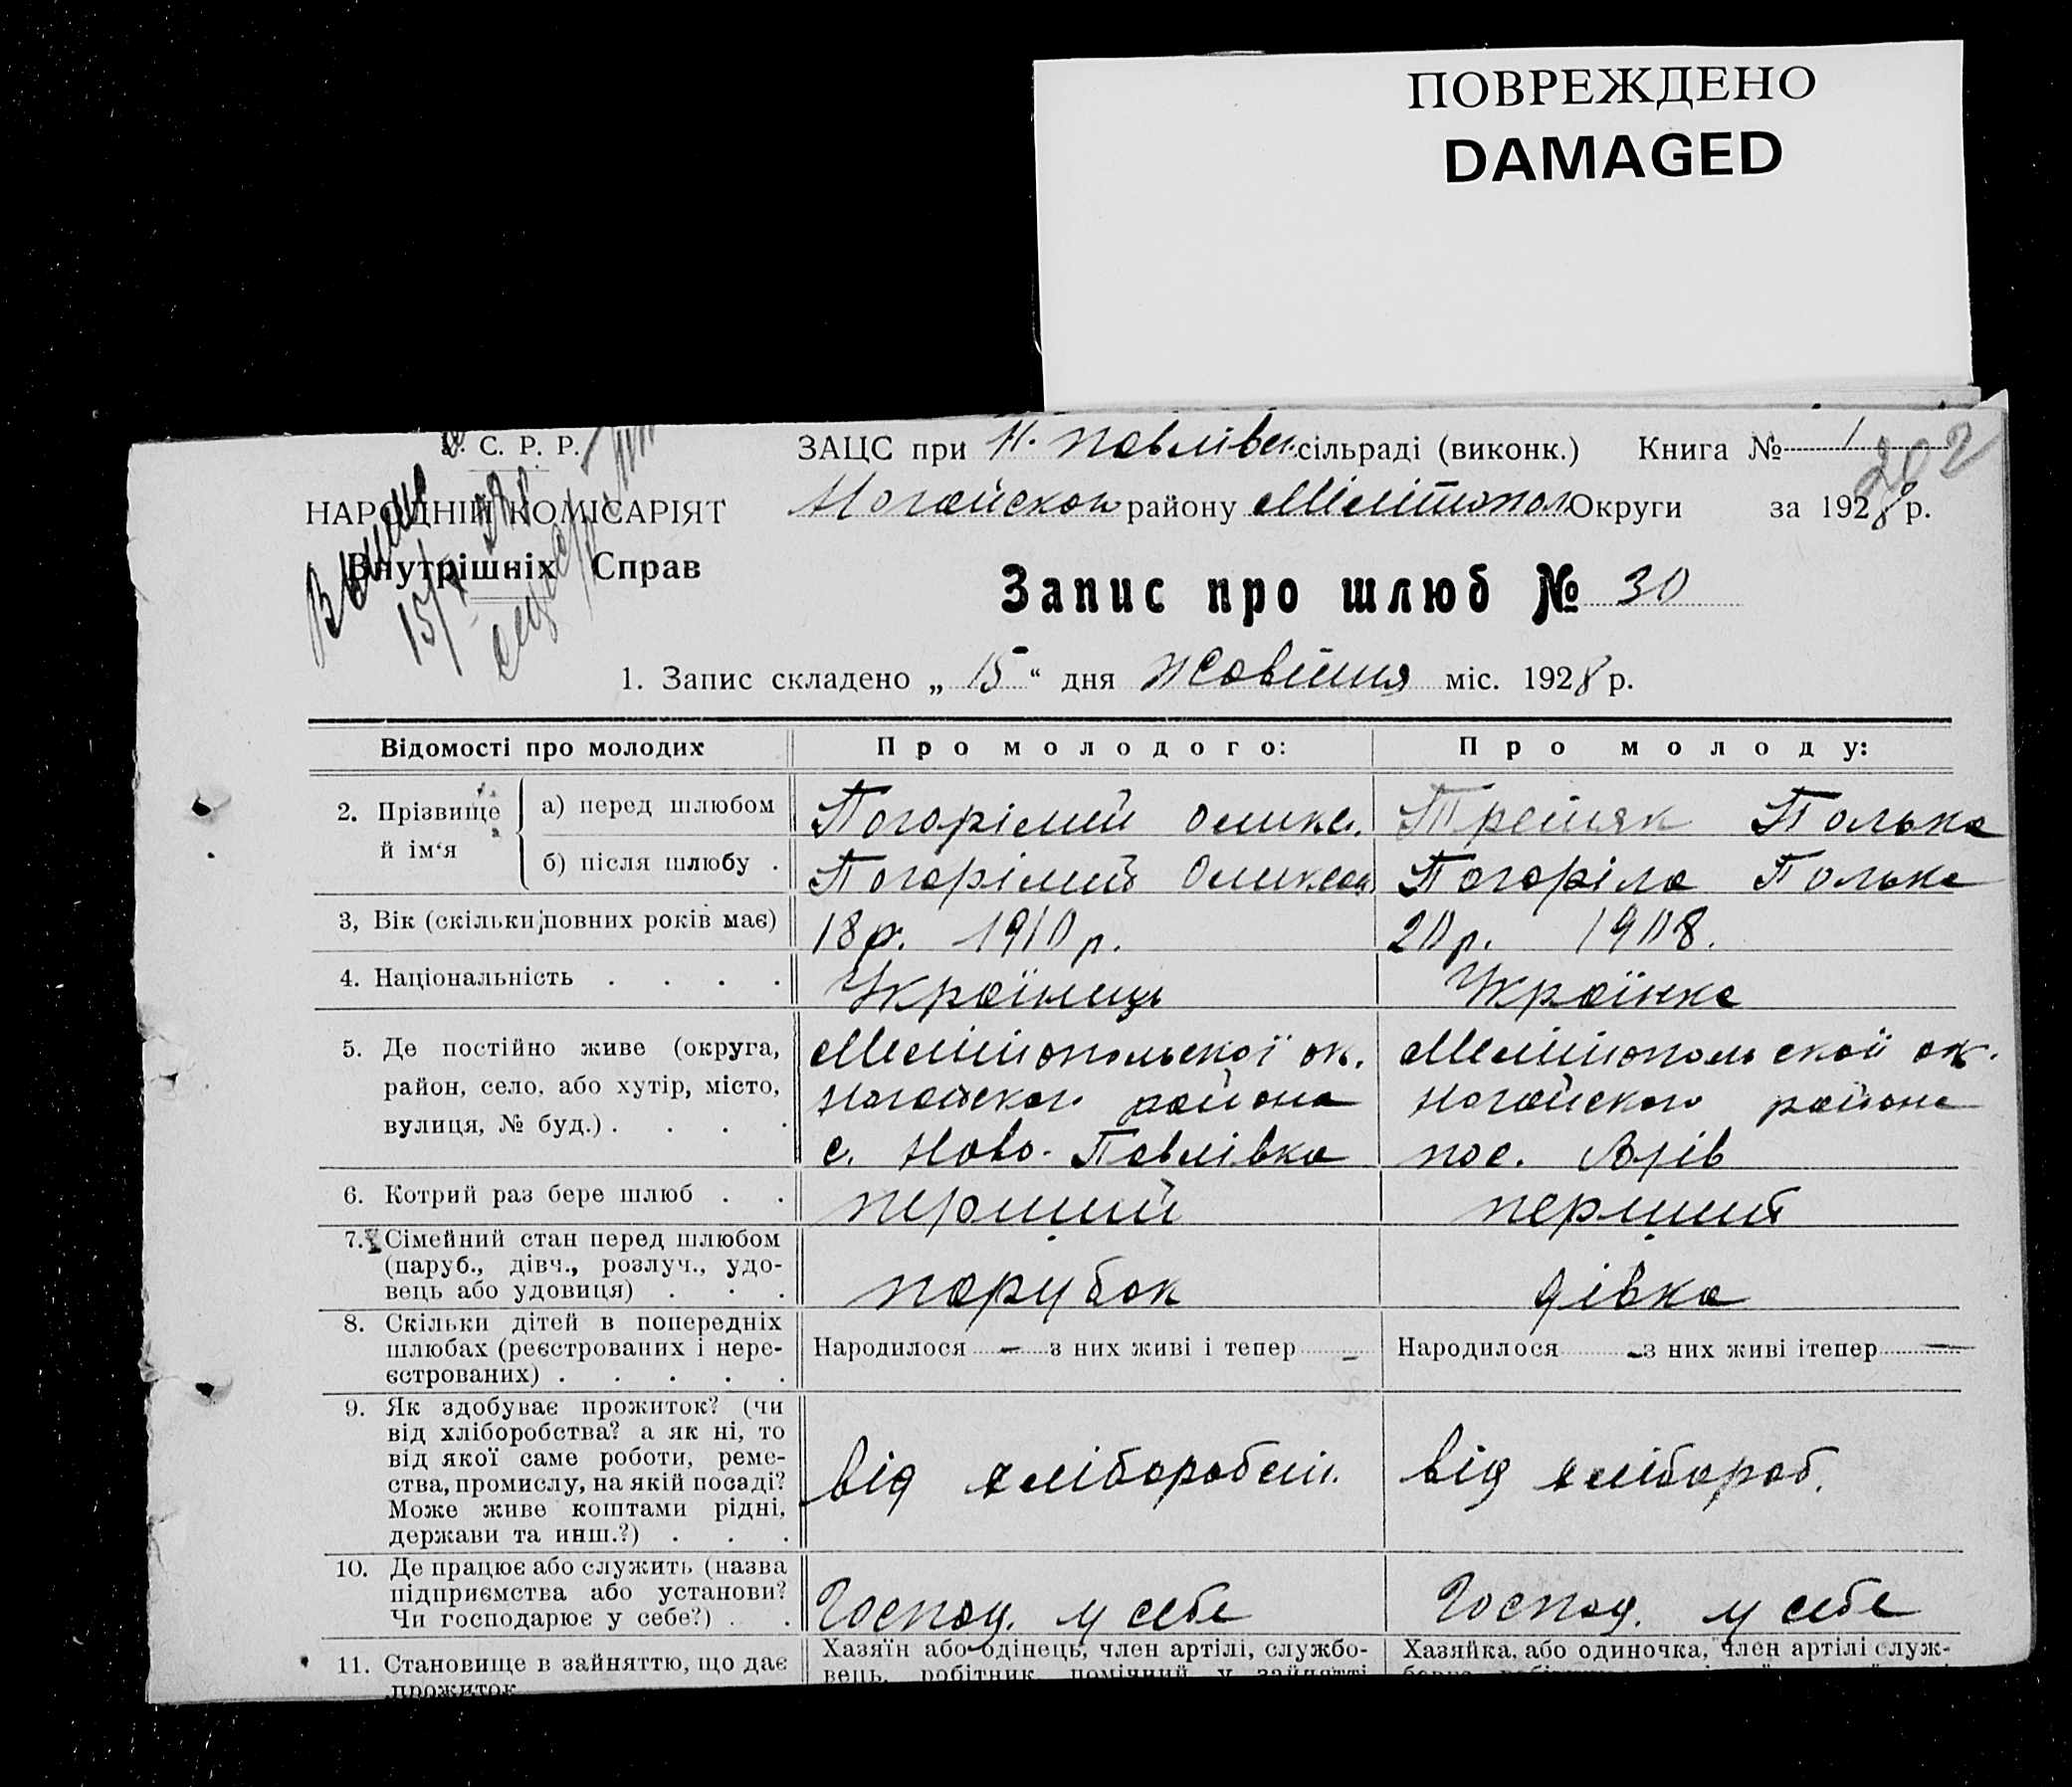 ПОВРЕЖДЕНО
DAMAGED
С. Р. Р.
НАРОДНІЙ КОМІСАРІЯТ
Внутрішніх Справ
15/X
ЗАЦС при Н. Павлівськ. сільраді (виконк.) Книга № 1
202
Ногайском району Мелітопол Округи за 1928 р.
Запис про шлюб № 30
1. Запис складено „ 15 “ дня Жовтня міс. 1928 р.
Відомості про молодих Про молодого: Про молоду:
2. Прізвище й ім‘я
а) перед шлюбом Погорілий Олекс. Третяк Полька
б) після шлюбу . Погорілий Олексан Погоріла Полька
3, Вік (скільки повних років має) 18 р. 1910 р. 20 р. 1908.
4. Національність . . . . Українець Українка
5. Де постійно живе (округа, Мелітопольскої ок. Мелітопольской ок.
район, село, або хутір, місто, Ногайског. района Ногайского района
вулиця, № буд.) . . . . с. Ново-Павлівка пос.
6. Котрий раз бере шлюб . . перший перший
7. Сімейний стан перед шлюбом
(паруб., дівч., розлуч., удо-
вець або удовиця) . . . парубок дівка
8. Скільки дітей в попередніх
шлюбах (реєстрованих і нере- Народилося — з них живі і тепер — Народилося — з них живі ітепер —
єстрованих) . . . . .
9. Як здобуває прожиток? (чи
від хліборобства? а як ні, то
від якої саме роботи, реме-
ства, промислу, на якій посаді? від хліборобст. від хлібороб.
Може живе коштами рідні,
держави та инш.?) . . .
10. Де працює або служить (назва
підприємства або установи?
Чи господарює у себе?) . . Господ. у себе Господ. у себе
11. Становище в зайняттю, що дає Хазяїн або одінець, член артілі, службо- Хазяйка, або одиночка, член артілі служ-
прожиток вець, робітник, помічний у зайнятті